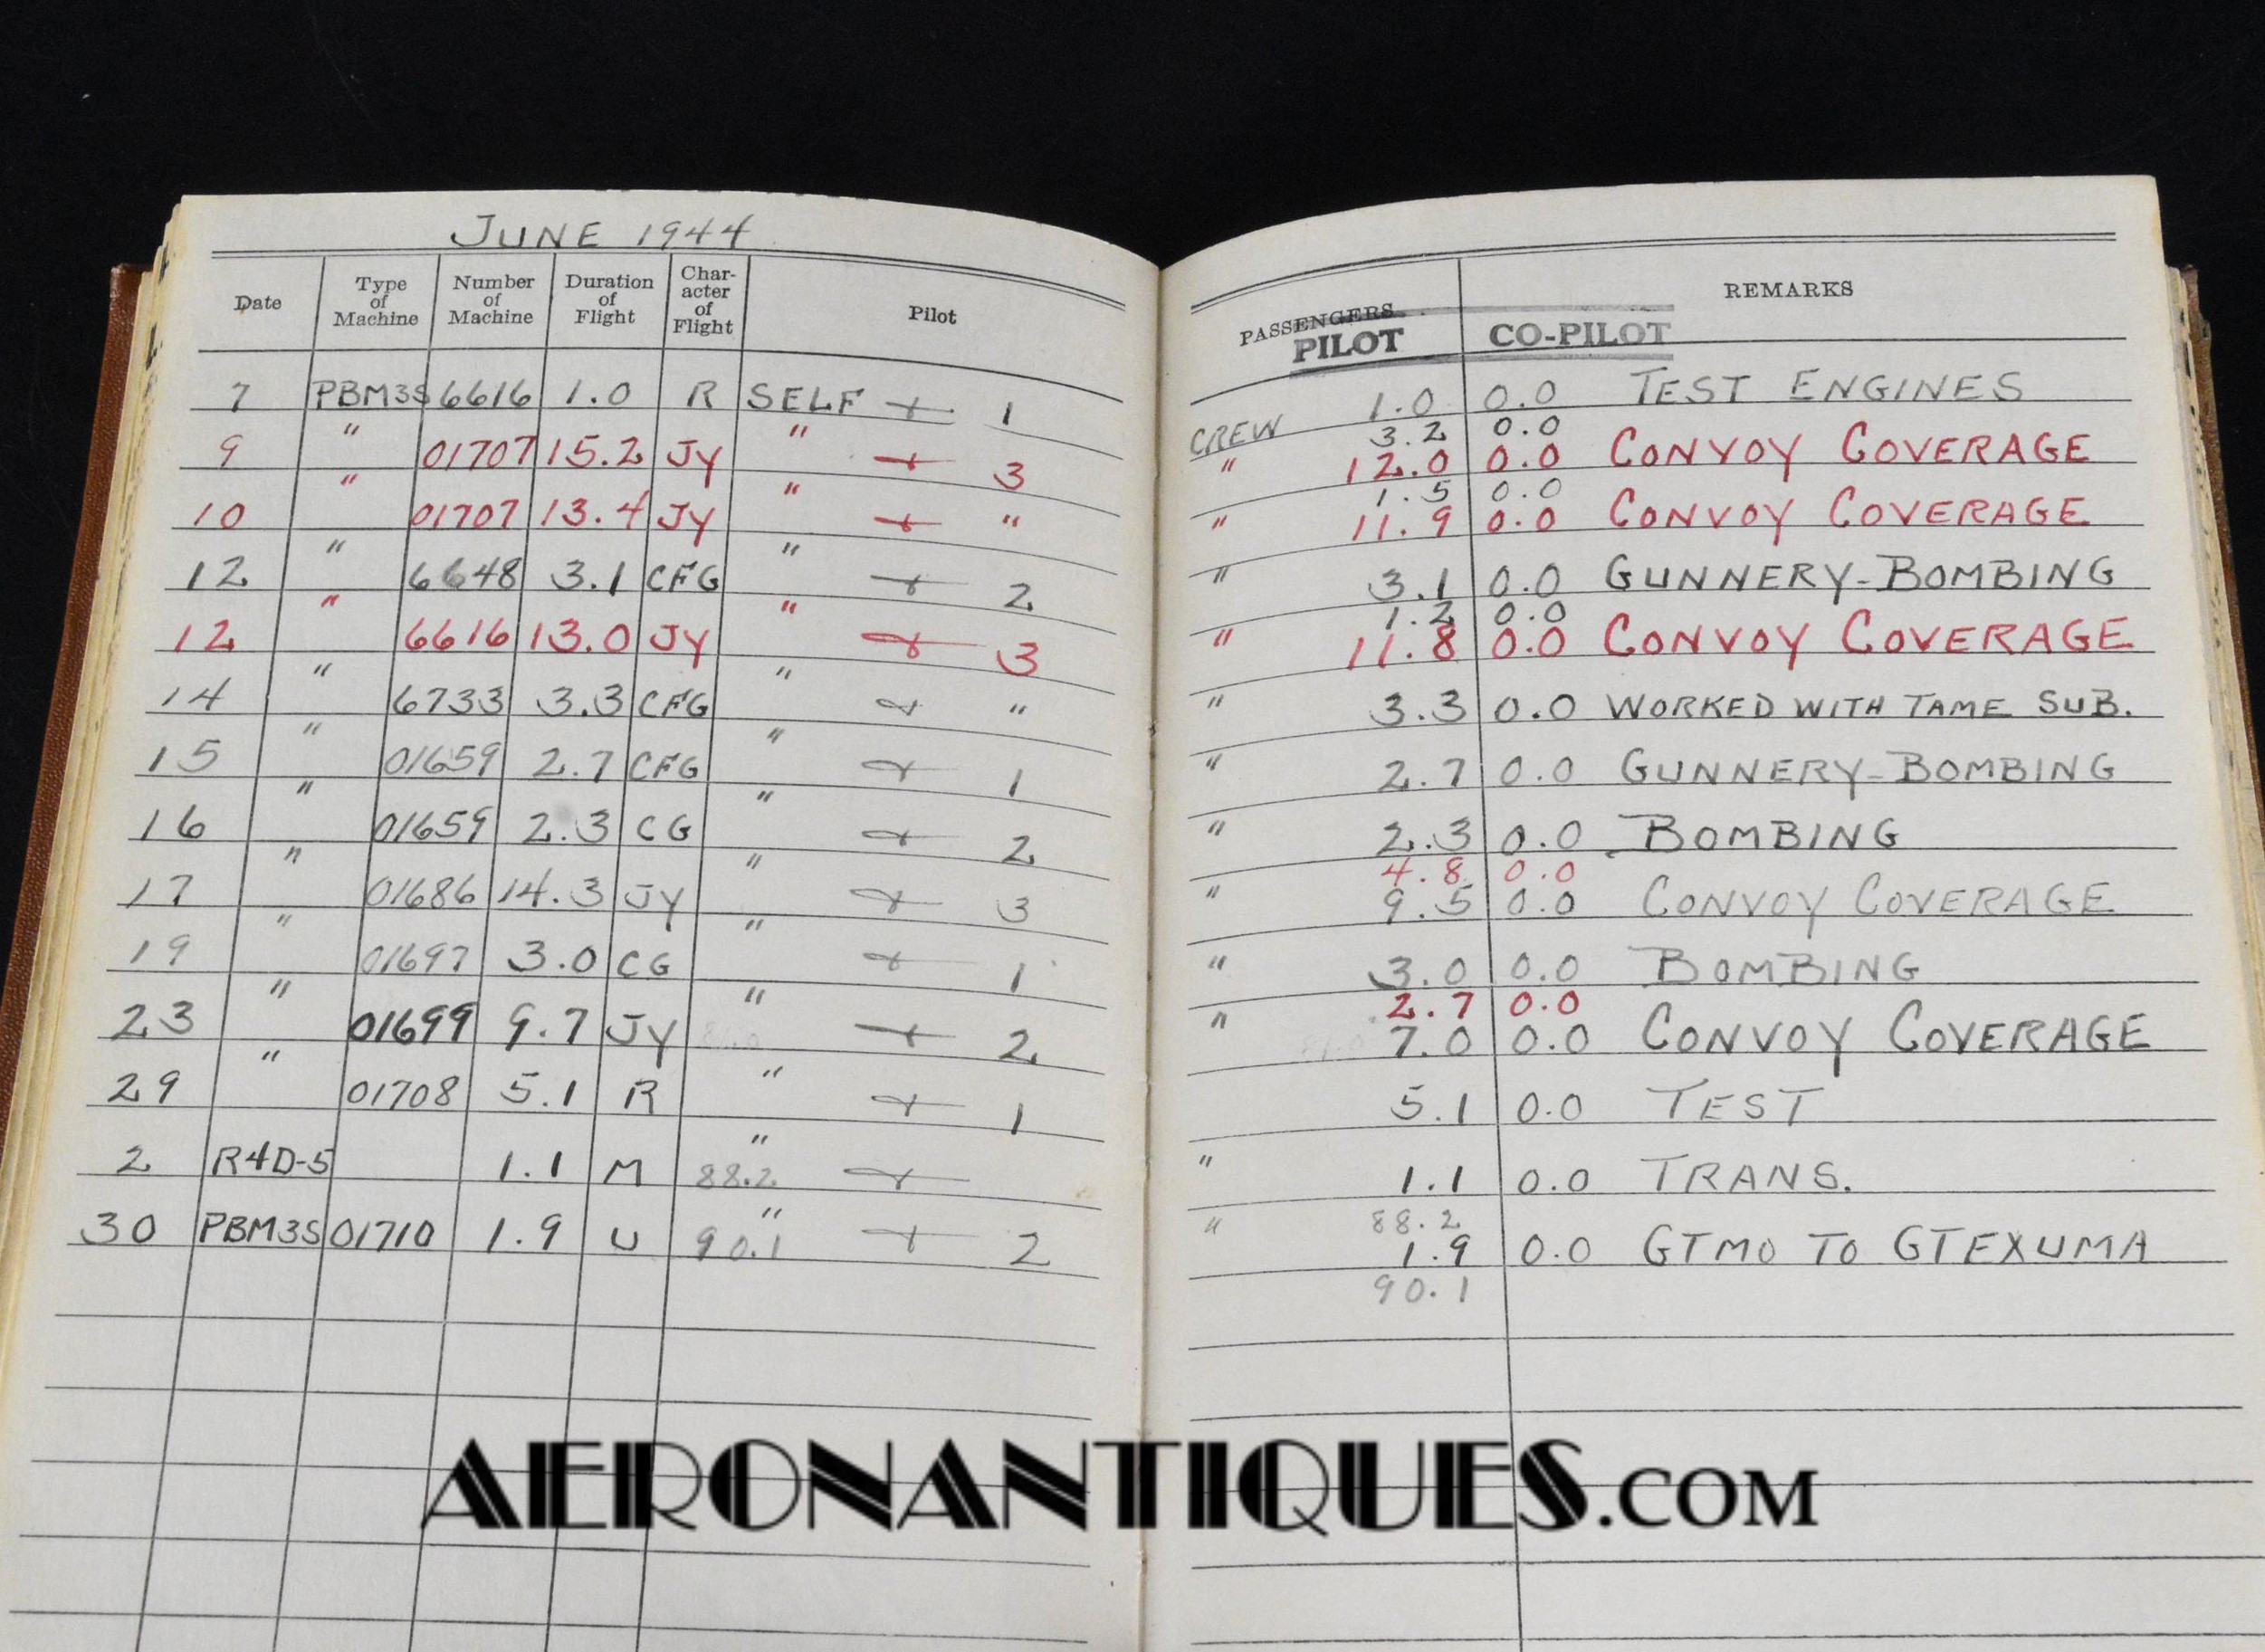 JUNE 1944
Date Type of Machine Number of Machine Duration of Flight Character of Flight Pilot PASSENGERS PILOT CO-PILOT REMARKS
7 PBM3S 6616 1.0 R SELF 1 CREW 1.0 0.0 TEST ENGINES
3.2 0.0
9 " 01707 15.2 Jy " 3 " 12.0 0.0 CONVOY COVERAGE
1.5 0.0
10 " 01707 13.4 Jy " " " 11.9 0.0 CONVOY COVERAGE
12 " 6648 3.1 CFG " 2 " 3.1 0.0 GUNNERY-BOMBING
1.2 0.0
12 " 6616 13.0 Jy " 3 " 11.8 0.0 CONVOY COVERAGE
14 " 6733 3.3 CFG " " " 3.3 0.0 WORKED WITH TAME SUB.
15 " 01659 2.7 CFG " 1 " 2.7 0.0 GUNNERY-BOMBING
16 " 01659 2.3 CG " 2 " 2.3 0.0 BOMBING
4.8 0.0
17 " 01686 14.3 Jy " 3 " 9.5 0.0 CONVOY COVERAGE
19 " 01697 3.0 CG " 1 " 3.0 0.0 BOMBING
2.7 0.0
23 " 01699 9.7 Jy " 2 " 7.0 0.0 CONVOY COVERAGE
29 " 01708 5.1 R " 1 5.1 0.0 TEST
2 R4D-5 1.1 M " 88.2 " 1.1 0.0 TRANS.
88.2
30 PBM3S 01710 1.9 U " 90.1 2 " 1.9 0.0 GTMO TO GTEXUMA
90.1
AERONANTIQUES.COM